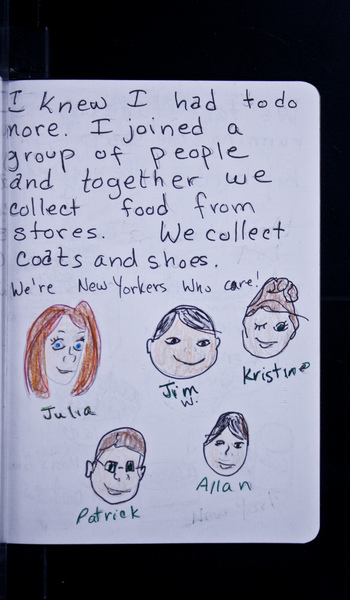 I knew I had to do
more. I joined a
group of people
and together we
collect food from
stores. We collect
coats and shoes.
We're New Yorkers who care!
Kristine
Jim W.
Julia
Allan
Patrick